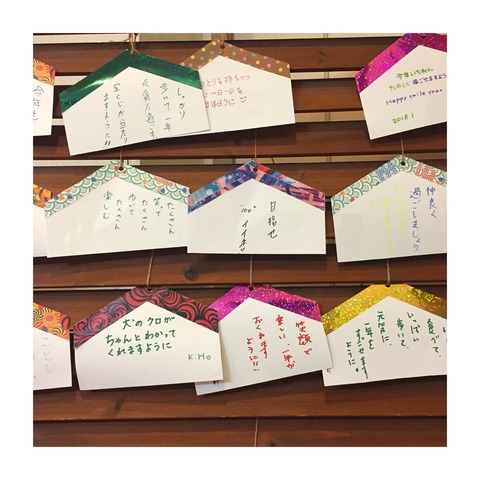 しっかり
歩いて一年
元気に過ごせ
宝くじが当たり
ますように!!
ゆとりを持ちつつ
一日一日を
ますように
今年いちねん
たのしく過ごせますよう
Happy smile year
2018.1
たくさん
笑って
たくさん
歩いて
たくさん
楽しむ
目指せ
"100" イイネ!!
仲良く
過ごしましょう
ことし
犬のクロが
ちゃんとわかって
くれますように
K.Ho
笑顔で
楽しい一年が
おくれます
ように!!
食べて、
いっぱい
歩いて、
元気に
一年を
すごせます
ように!